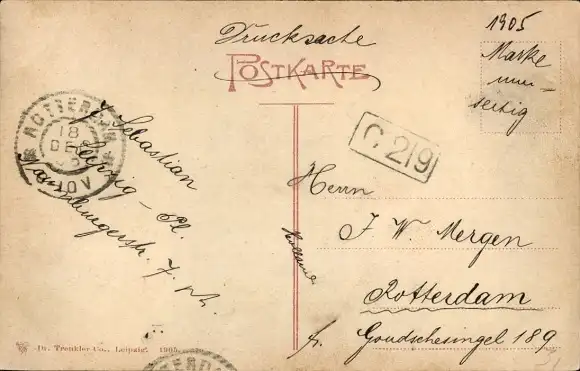 Drucksache
POSTKARTE
1905
Marke
um-
seitig
ROTTERDAM
18
DEC
05
J. Sebastian
Leipzig - Pl.
Naumburgerstr. 7
C 219
Herrn
J. W. Mergen
Holland
Rotterdam
fr. Goudschesingel 189
Dr. Trenkler Co., Leipzig. 1905.